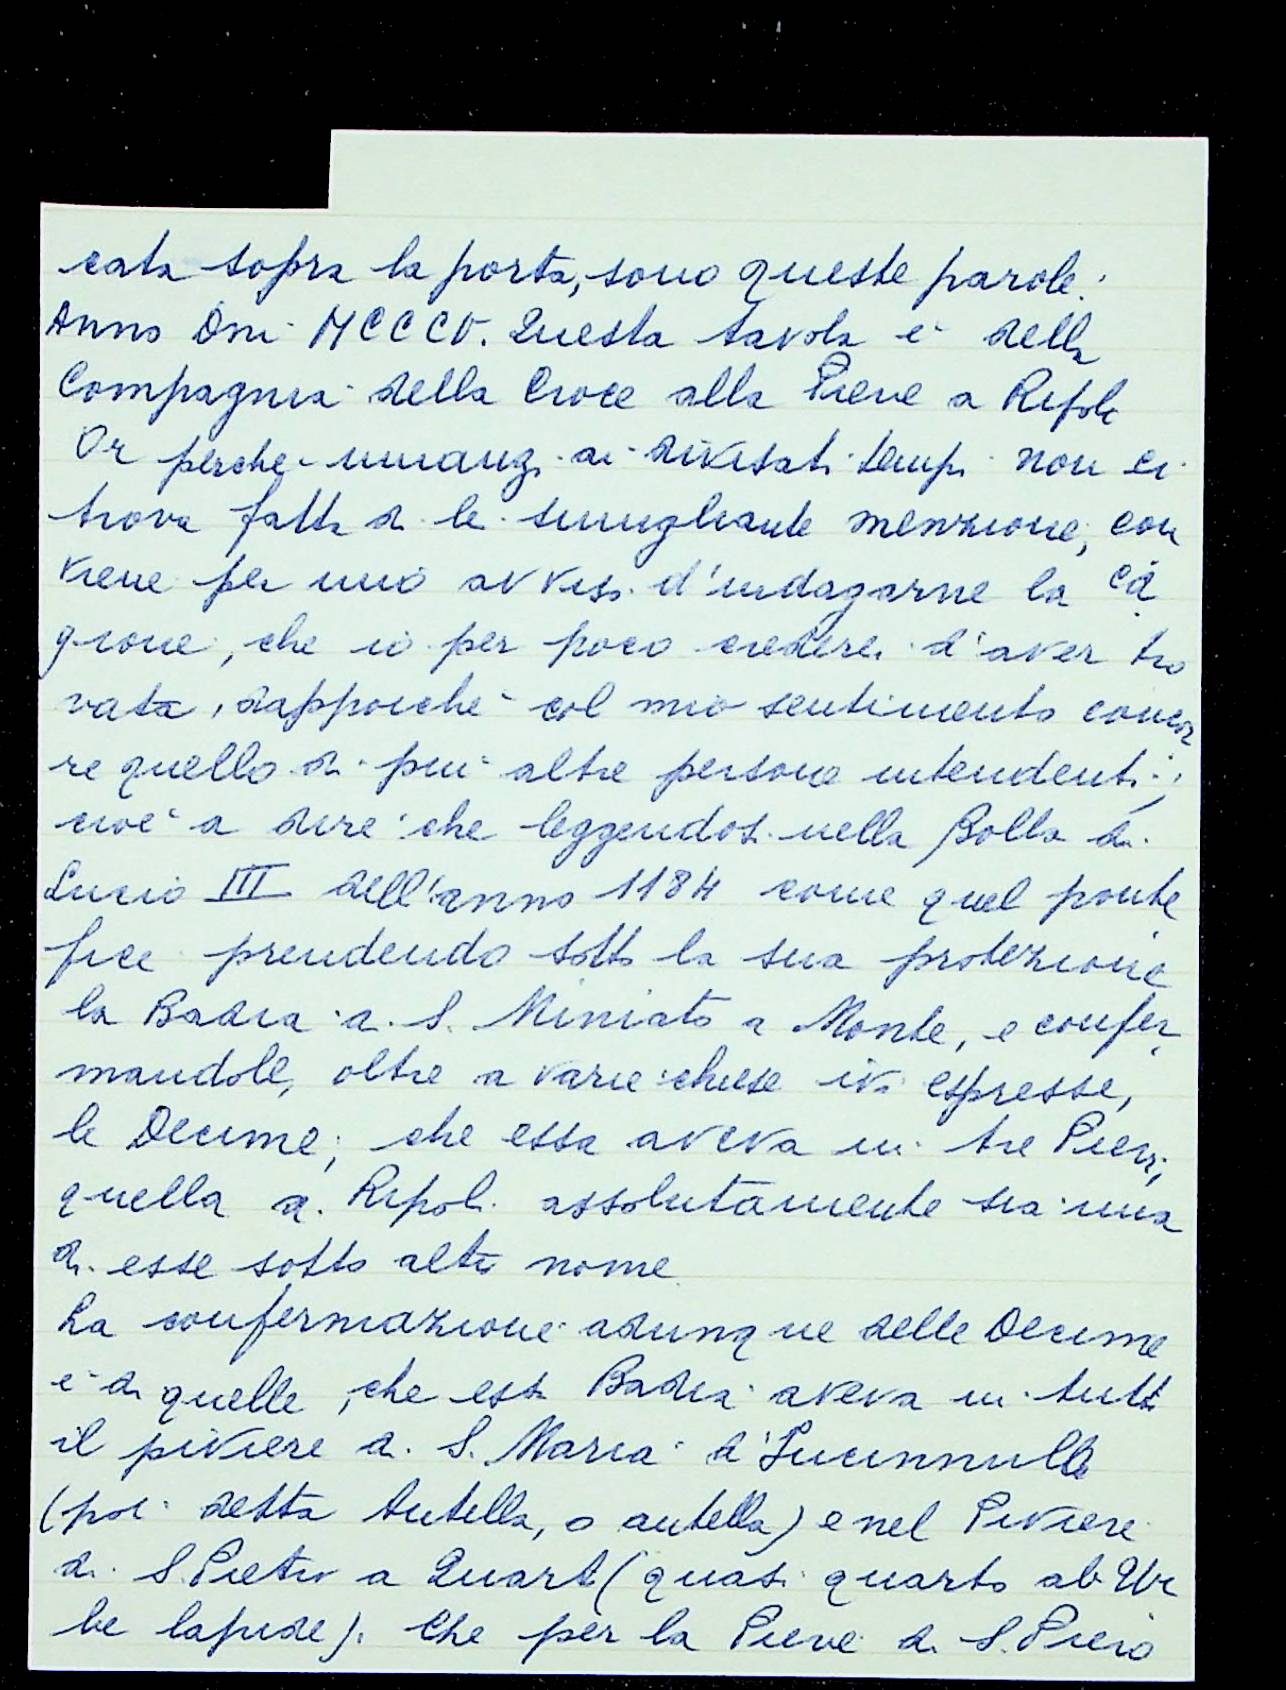 cata sopra la porta, sono queste parole:
Anno Dni MCCCV. Questa tavola è della
Compagnia della Croce alla Pieve a Ripoli
Or perche innanzi ai divisati tempi non ci
trova fatta di le simigliante menzione, con
viene per mio avviso d'indagarne la ca
gione, che io per poco crederei d'aver tro
vata, dappoiché col mio sentimento concor
re quello di più altre persone intendenti;
cioè a dire che leggendosi nella Bolla di
Lucio III dell'anno 1184 come quel ponte
fice prendendo sotto la sua protezione
la Badia a S. Miniato a Monte, e confer
mandole, oltre a varie chiese ivi espresse,
le Decime, che essa aveva in tre Pievi,
quella a Ripoli assolutamente sia una
di esse sotto altro nome
La confermazione adunque delle Decime
è di quelle, che essa Badia aveva in tutto
il piviere di S. Maria d'
(poi detta Antella, o antella) e nel Piviere
di S. Pietro a Quarto (quasi quarto ab Ur
be lapide). Che per la Pieve di S. Piero